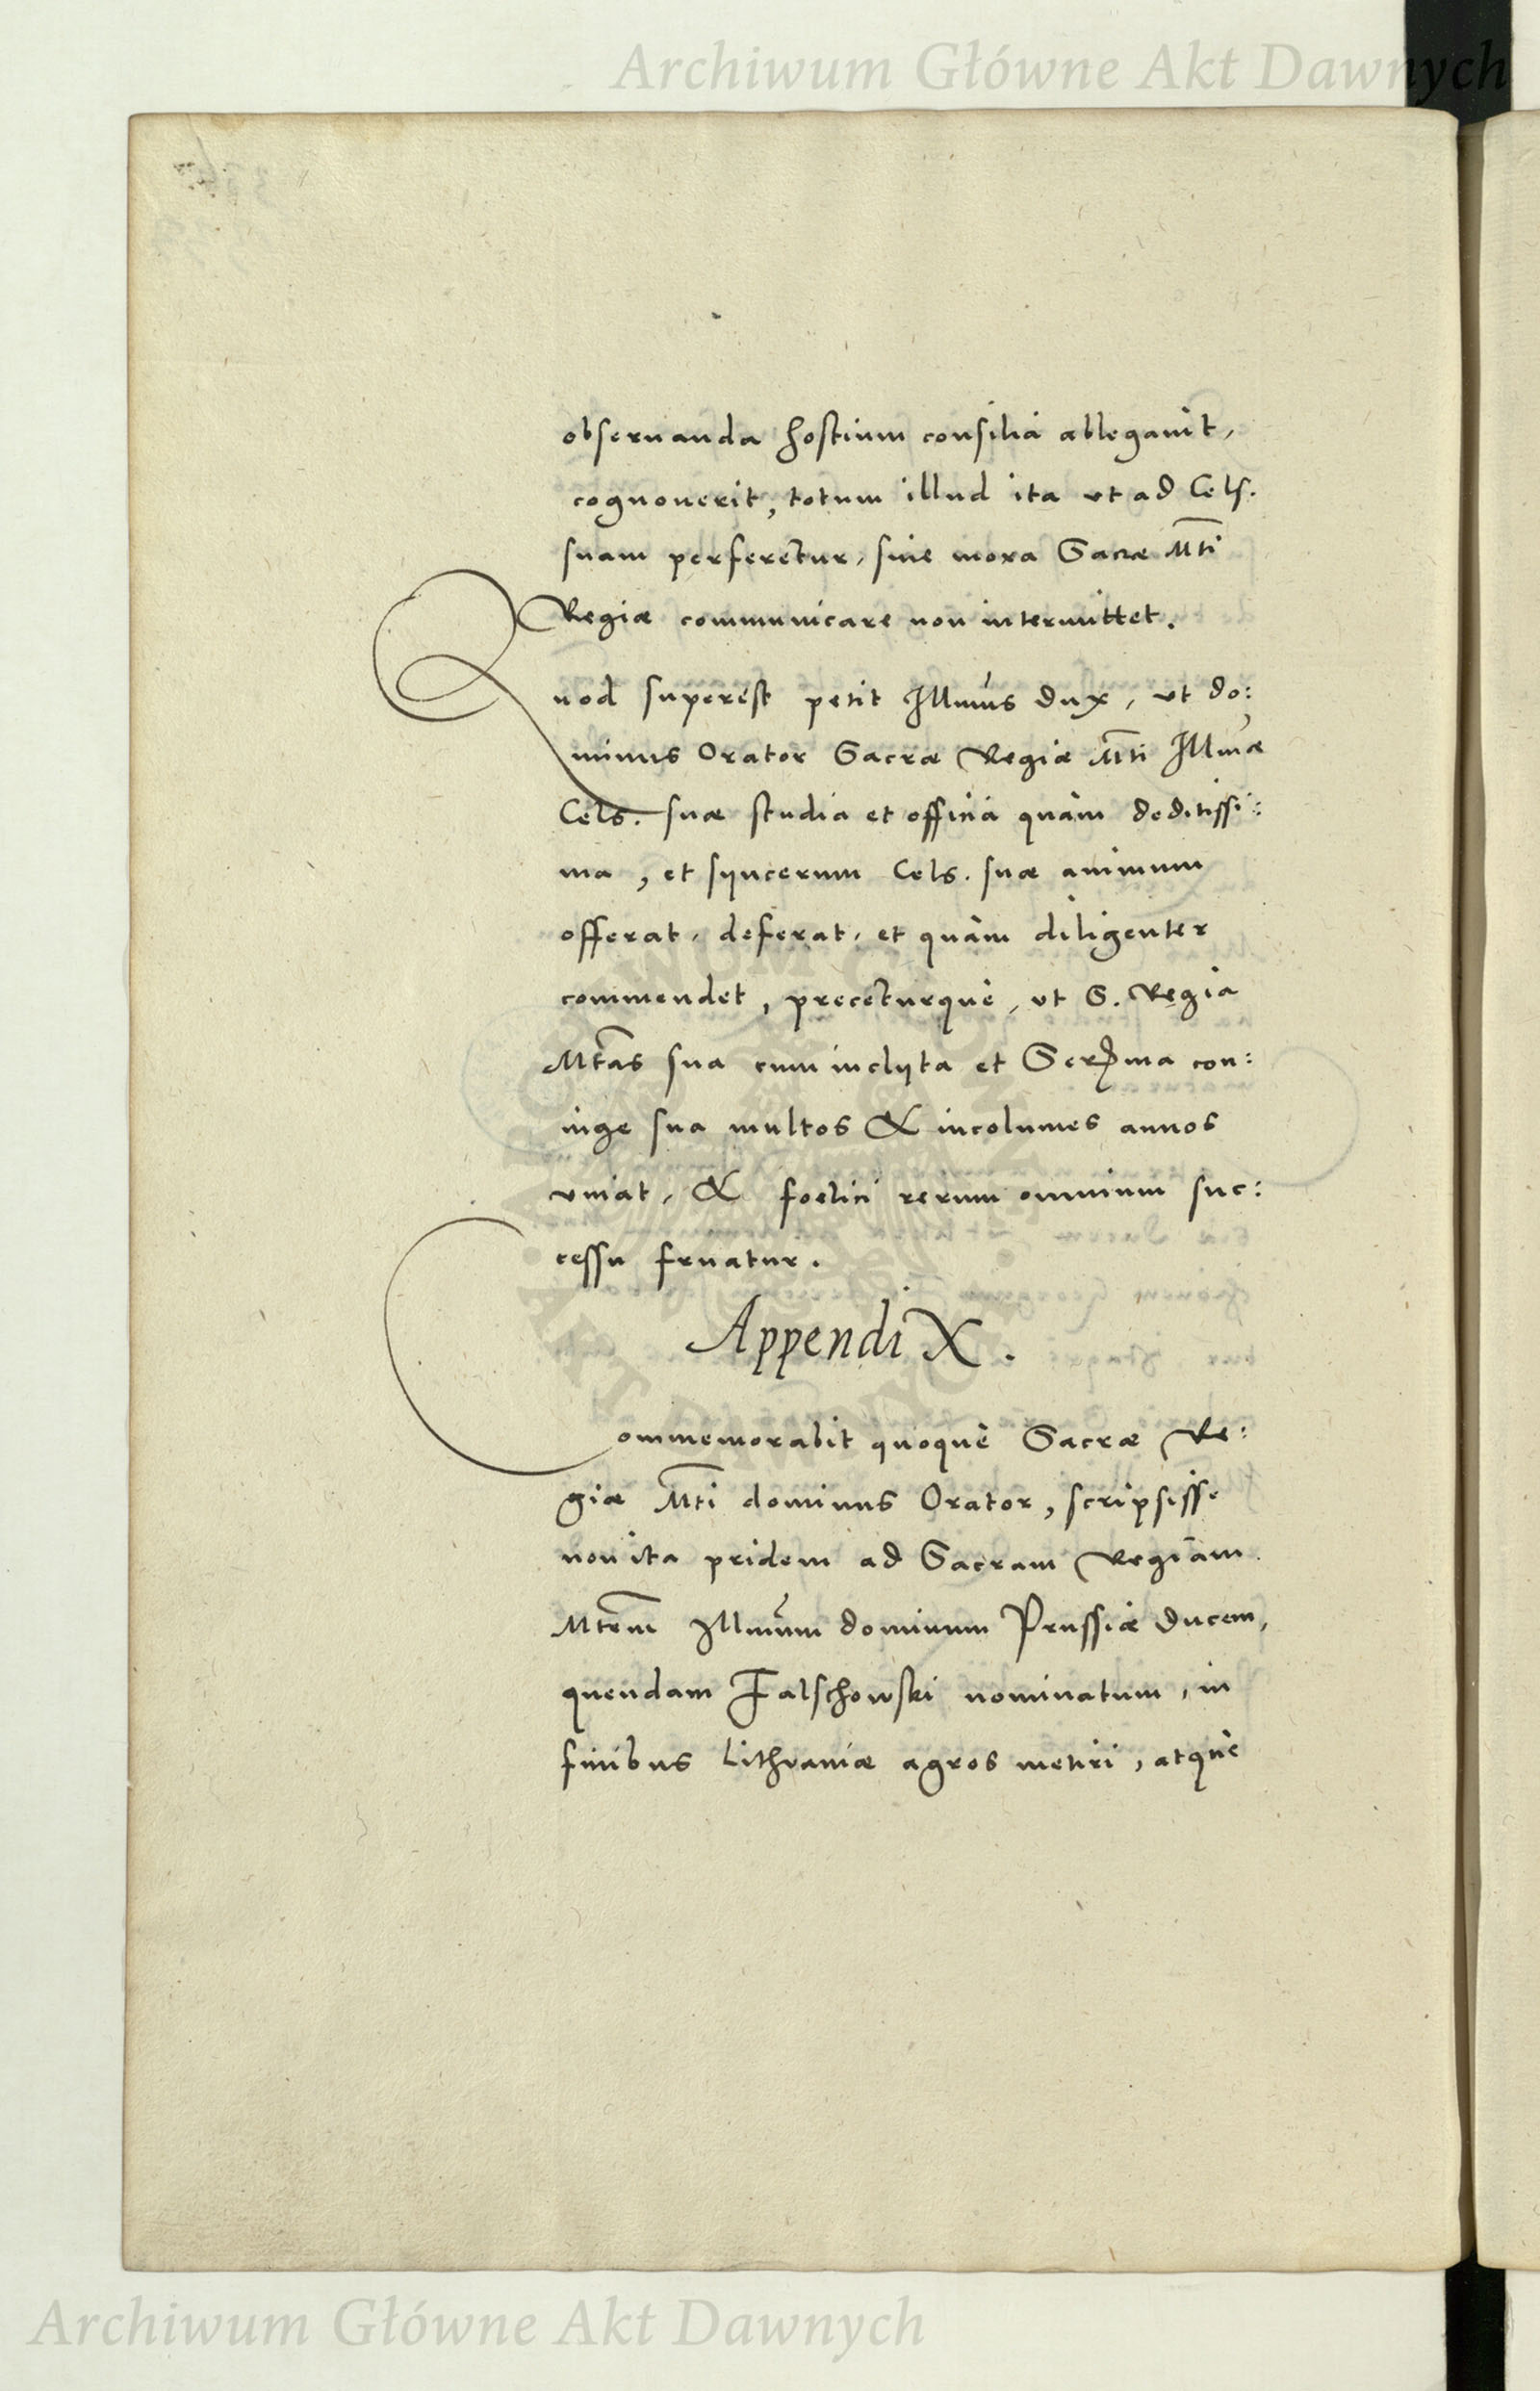 Archiwum Główne Akt Dawnych
obseruanda hostium consilia ablegauit,
cognouerit, totum illud ita vt ad Cels.
suam perferetur, sine mora Sacræ Mti
Regiæ communicare non intermittet.
Quod superest petit Illmus Dux, vt do:
minus Orator Sacræ Regiæ Mti Illmæ
Cels. suæ studia et officia quàm deditissi:
ma, et syncerum Cels. suæ animum
offerat, deferat, et quàm diligenter
commendet, preceturquè, vt S. Regia
Mtas sua cum inclyta et Serma con:
iuge sua multos & incolumes annos
viuat, & foelici rerum omnium suc:
cessu fruatur.
Appendix.
Commemorabit quoquè Sacræ Re:
giæ Mti dominus Orator, scripsisse
non ita pridem ad Sacram Regiam
Mtem Illmum dominum Prussiæ Ducem,
quendam Falschowski nominatum, in
finibus Lithvaniæ agros metiri, atquè
Archiwum Główne Akt Dawnych